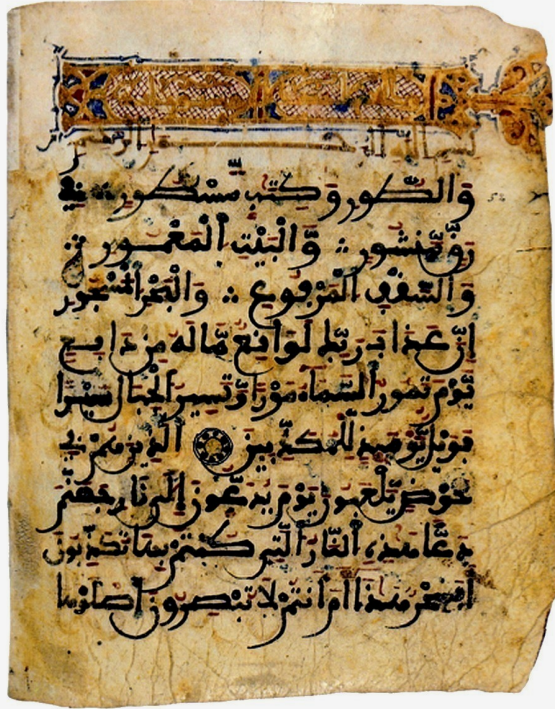 بسم الله الرحمن الرحيم
وَالطُّورِ وَكِتَٰبٍ مَّسْطُورٍ فِي
رَقٍّ مَّنشُورٍ وَالْبَيْتِ الْمَعْمُورِ
وَالسَّقْفِ الْمَرْفُوعِ وَالْبَحْرِ الْمَسْجُورِ
إِنَّ عَذَابَ رَبِّكَ لَوَاقِعٌ مَّا لَهُ مِن دَافِعٍ
يَوْمَ تَمُورُ السَّمَاءُ مَوْرًا وَتَسِيرُ الْجِبَالُ سَيْرًا
فَوَيْلٌ يَوْمَئِذٍ لِّلْمُكَذِّبِينَ الَّذِينَ هُمْ فِي
خَوْضٍ يَلْعَبُونَ يَوْمَ يُدَعُّونَ إِلَىٰ نَارِ جَهَنَّمَ
دَعًّا هَٰذِهِ النَّارُ الَّتِي كُنتُم بِهَا تُكَذِّبُونَ
أَفَسِحْرٌ هَٰذَا أَمْ أَنتُمْ لَا تُبْصِرُونَ اصْلَوْهَا